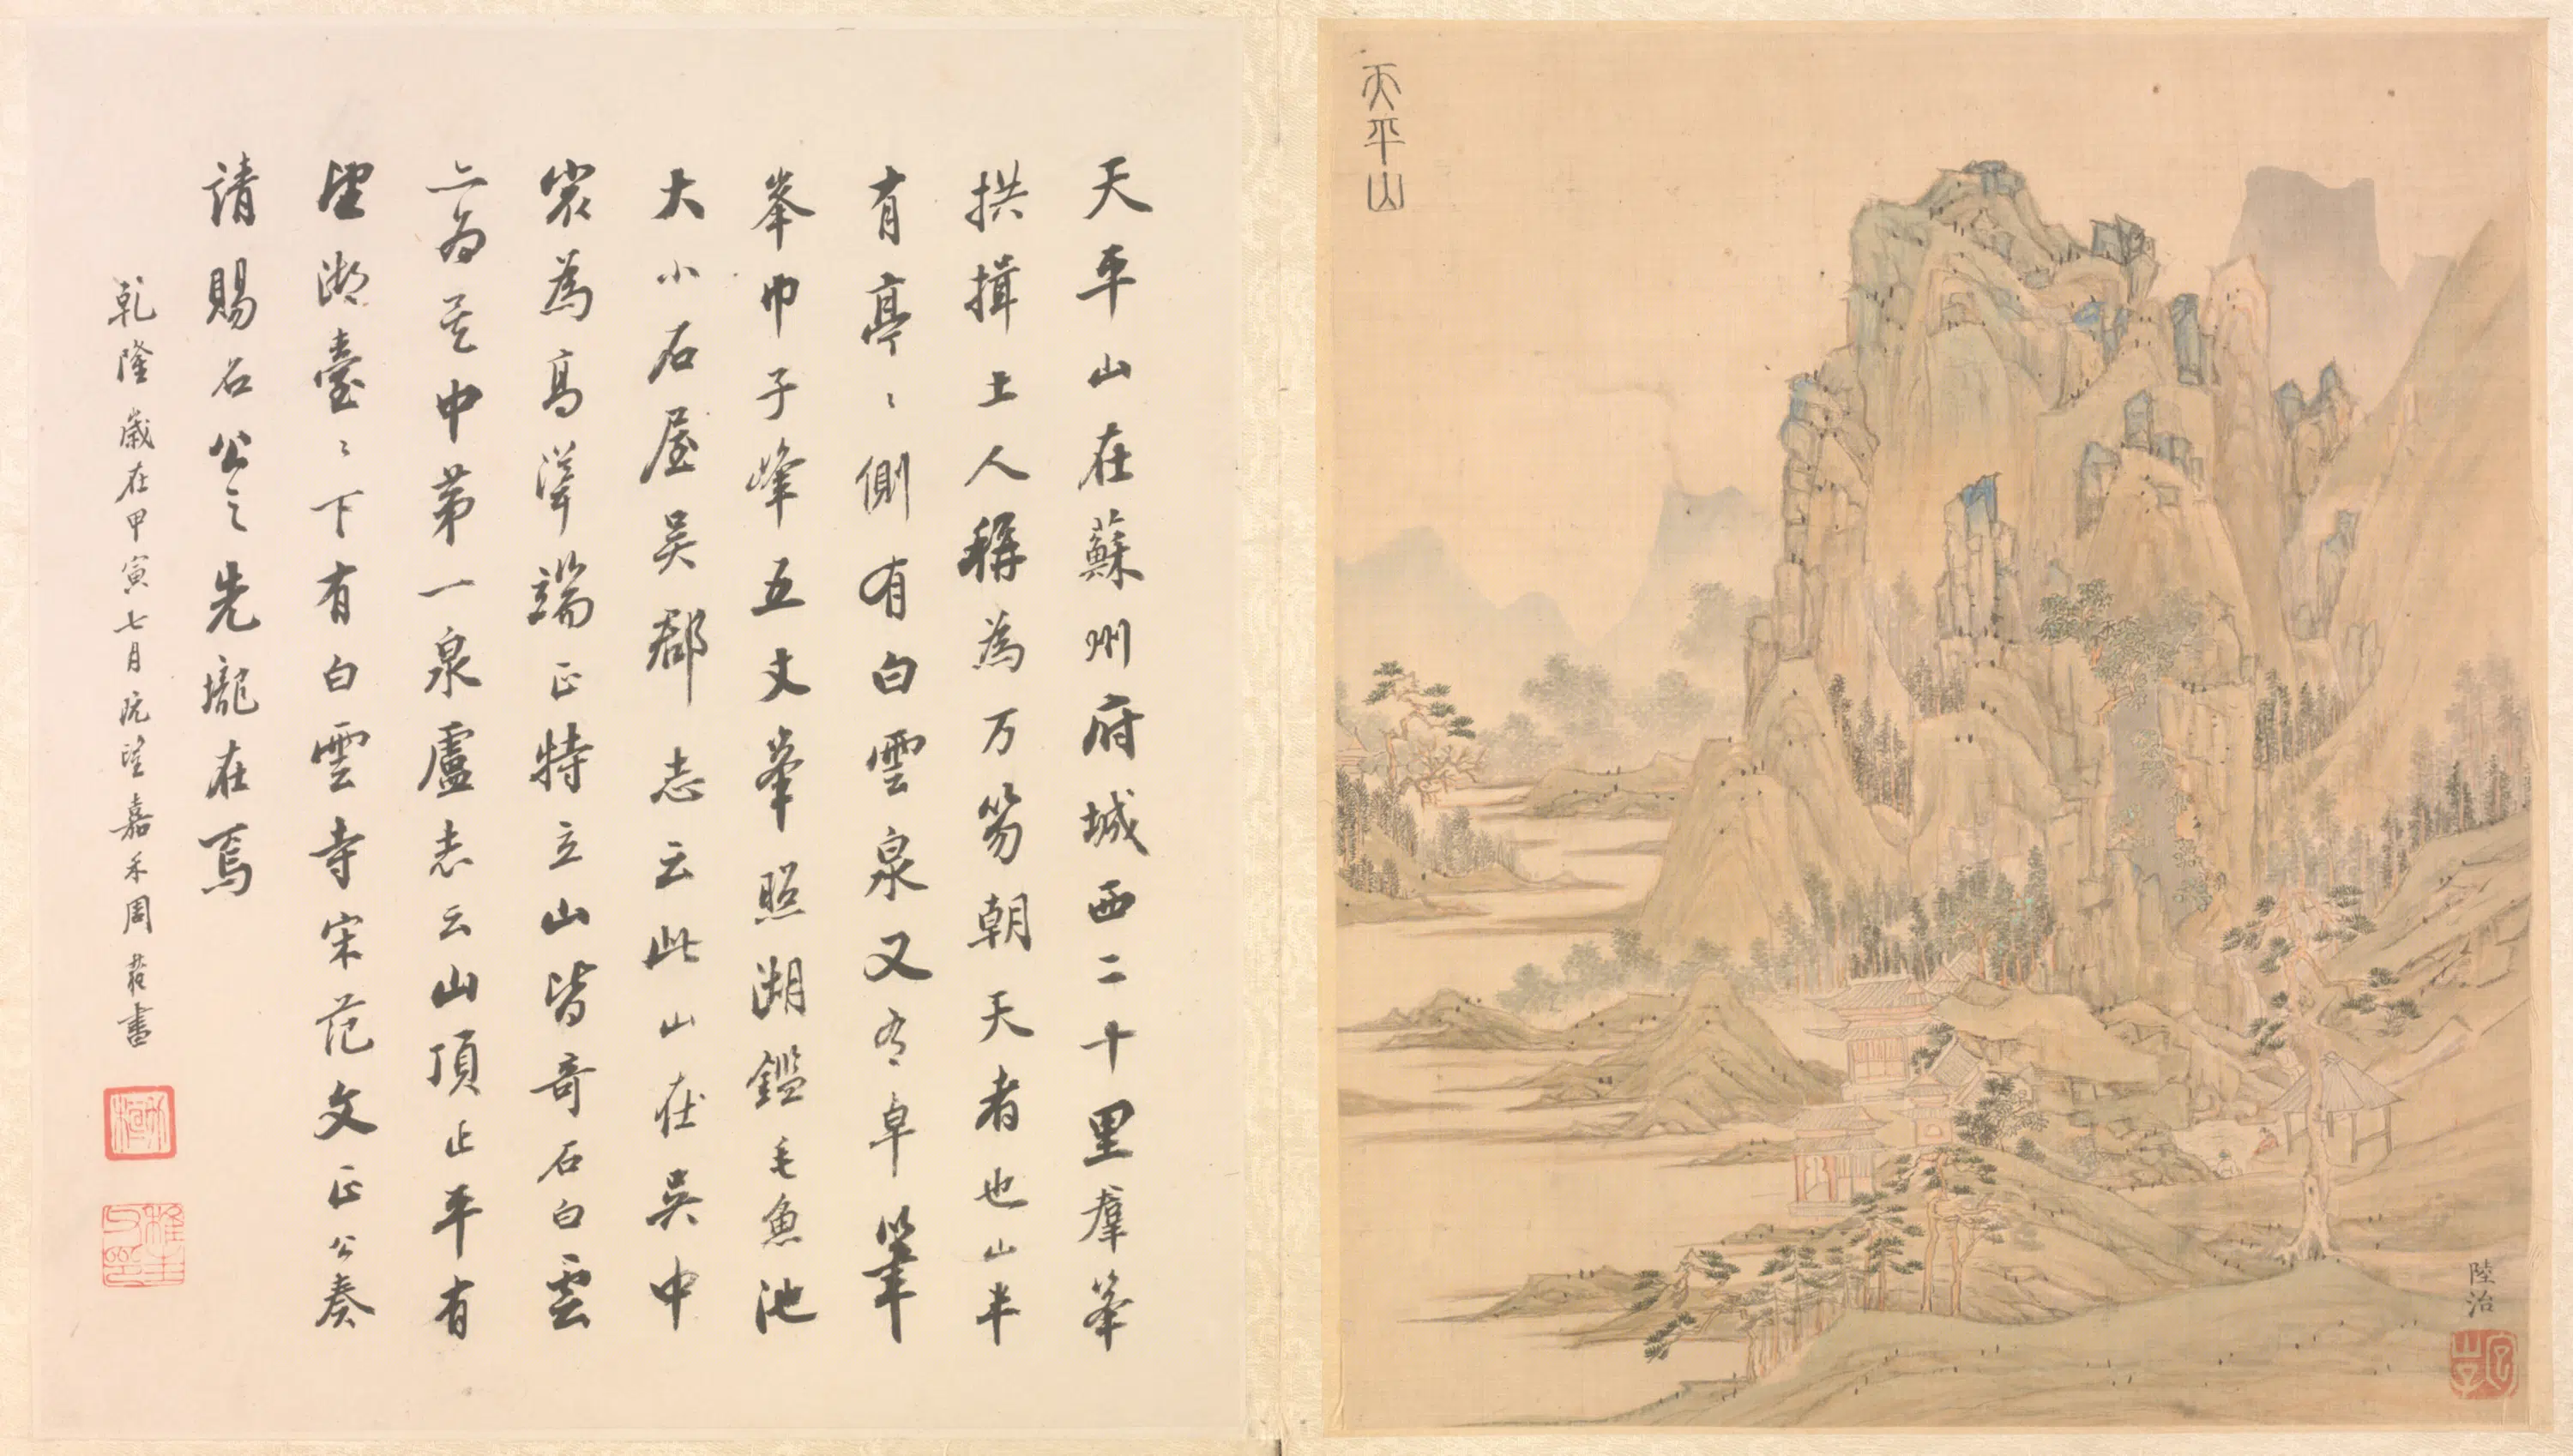 天平山
陸治
天平山在蘇州府城西二十里羣峯
拱揖土人稱為万笏朝天者也山半
有亭〻側有白雲泉又有卓筆
峯巾子峰五丈峯照湖鑑毛魚池
大小石屋吳郡志云此山在吳中
最為高聳端正特立山皆奇石白雲
亦為吳中第一泉盧志云山頂正平有
望湖臺〻下有白雲寺宋范文正公奏
請賜名公之先壠在焉
乾隆歲在甲寅七月既望嘉禾周書